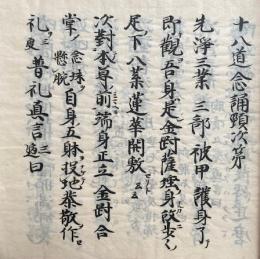 十八道念誦頸次第
先淨三業 三部 被甲 護身了
即觀吾身是金剛薩埵身改步々
足下八葉蓮華開敷
次對本尊前端身正立 金剛合
掌 念珠懸腕 自身五躰投地恭敬作
礼 普礼真言三遍曰